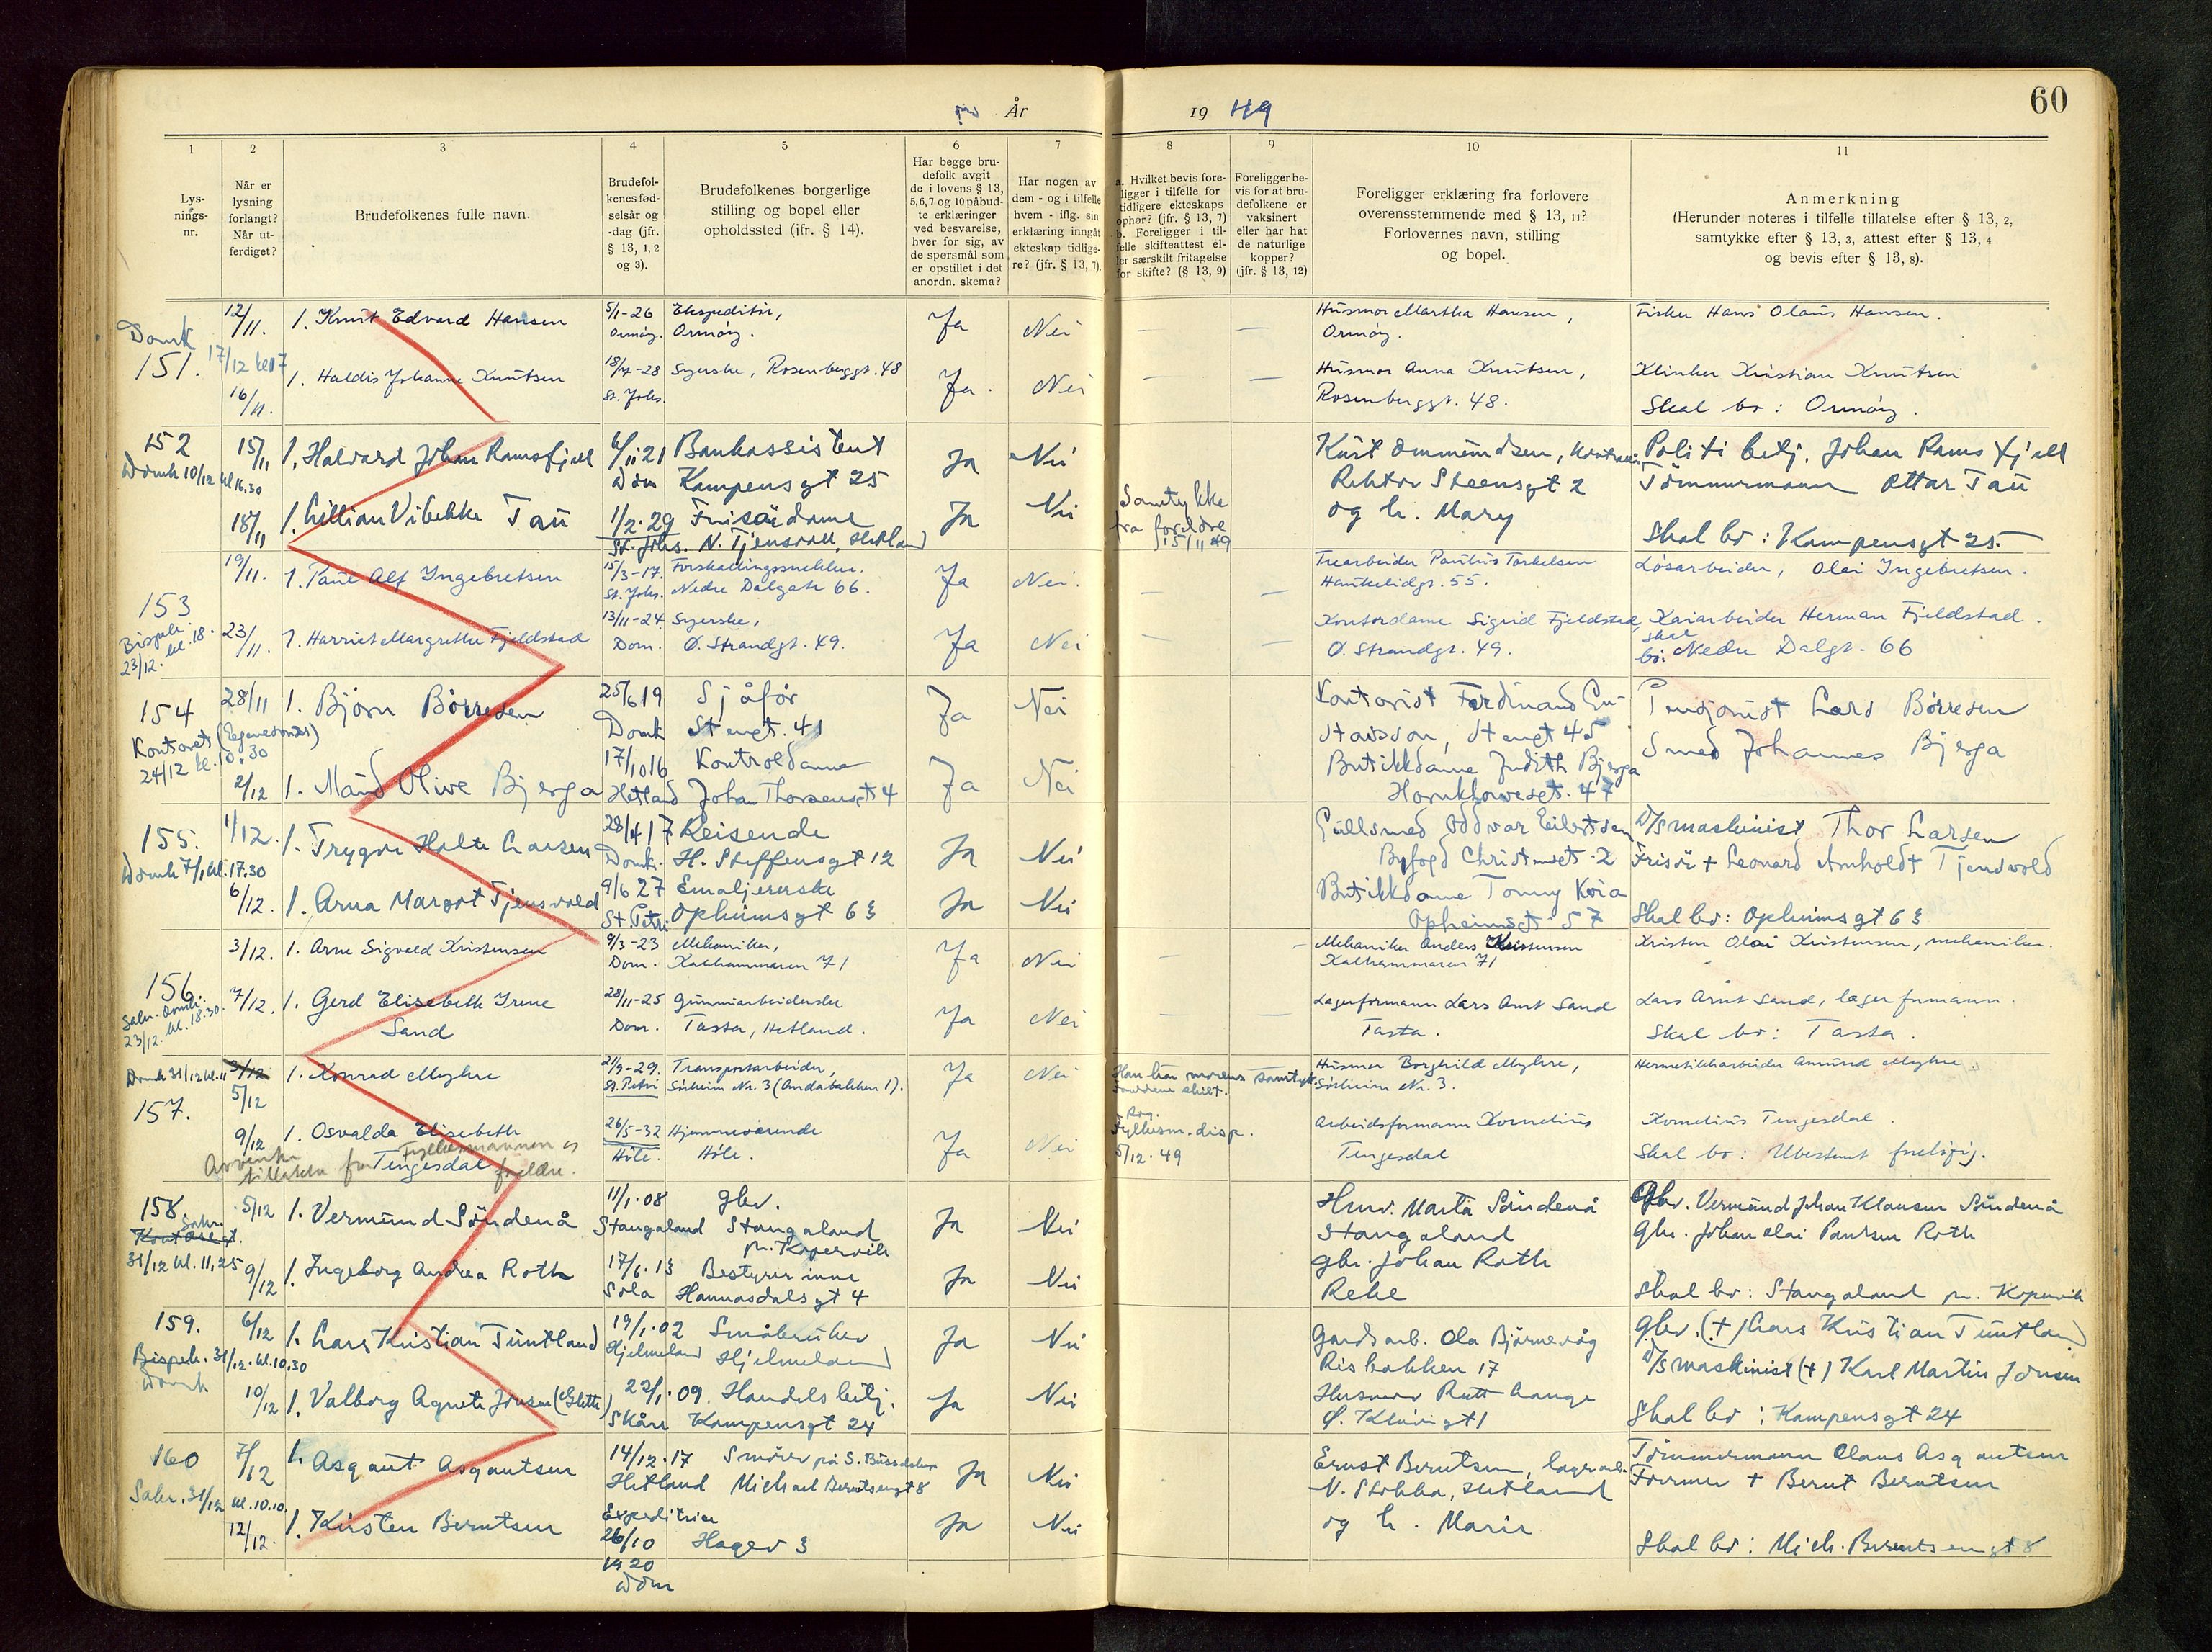 År 19 49
60
1 2 3 4 5 6 7 8 9 10 11
Lys-
nings-
nr.
Når er
lysning
forlangt?
Når ut-
ferdiget?
Brudefolkenes fulle navn.
Brudefol-
kenes fød-
selsår og
-dag (jfr.
§ 13, 1, 2
og 3).
Brudefolkenes borgerlige
stilling og bopel eller
opholdssted (jfr. § 14).
Har begge bru-
defolk avgit
de i lovens § 13,
5,6,7 og 10 påbud-
te erklæringer
ved besvarelse,
hver for sig, av
de spørsmål som
er opstillet i det
anordn. skema?
Har nogen av
dem - og i tilfelle
hvem - iflg. sin
erklæring inngåt
ekteskap tidlige-
re? (jfr. § 13, 7).
a. Hvilket bevis fore-
ligger i tilfelle for
tidligere ekteskaps
ophør? (jfr. § 13, 7)
b. Foreligger i til-
felle skifteattest el-
ler særskilt fritagelse
for skifte? (§ 13, 9)
Foreligger be-
vis for at bru-
defolkene er
vaksinert
eller har hat
de naturlige
kopper?
(jfr. § 13, 12)
Foreligger erklæring fra forlovere
overensstemmende med § 13, 11?
Forlovernes navn, stilling
og bopel.
Anmerkning
(Herunder noteres i tilfelle tillatelse efter § 13, 2,
samtykke efter § 13, 3, attest efter § 13, 4
og bevis efter § 13, 8).
Domk
151. 17/12 kl 17
12/11. 1. Knut Edvard Hansen 5/1-26 Ekspeditør, Ja Nei — — Husmor Martha Hansen, Fisker Hans Olaus Hansen.
Ormøy. Ormøy. Ormøy.
1. Haldis Johanne Knutsen 18/7-28 Syerske, Rosenberggt. 48 Ja. Nei — — Husmor Anna Knutsen, Klinker Kristian Knutsen
16/11. St. Johs. Rosenberggt. 48. Skal bo: Ormøy.
152 15/11 1. Halvard Johan Ramsfjell 6/11 21 Bankassistent Ja Nei Kurt Ommundsen, Politi betj. Johan Ramsfjell
Domk 10/12 kl 16.30 Dom Kampensgt 25 Rektor Steensgt 2 Tømmermann Ottar Tau
18/11 1. Lillian Vibekke Tau 1/2.29 Frisørdame Ja Nei Samtykke fra foreldre 15/11 49 og h. Mary
St. Johs. N. Tjensvoll, Hetland Skal bo: Kampensgt 25
153 19/11. 1. Paul Alf Ingebretsen 15/3-17. Forskallingssnekker. Ja Nei. — — Trearbeider Paulus Torkelsen Løsarbeider, Olai Ingebretsen.
St. Johs. Nedre Dalgate 66. Haukelidgt. 55.
Bispek. kl. 18.
23/12.
23/11. 1. Harriet Margrethe Fjeldstad 13/11-24 Syerske, Ja Nei — — Kontordame Sigrid Fjeldstad, Kaiarbeider Herman Fjeldstad.
Dom. Ø. Strandgt. 49. Ø. Strandgt. 49. skal bo: Nedre Dalgt. 66
154 28/11 1. Bjørn Børresen 25/6 19 Sjåfør Ja Nei Kontorist Ferdinand Gu- Pensjonist Lars Børresen
Kontoret (Egenesonns) Domk Stengt. 41 stavsson, Stengt 45 Smed Johannes Bjerga
24/12 kl. 10.30
2/12 1. Maud Olive Bjerga 17/10 16 Kontroldame Ja Nei Butikkdame Judith Bjerga
Hetland Johan Thorsensgt 4 Hornkloweset. 47
155. 1/12. 1. Trygve Holte Larsen 28/4 17 Reisende Ja Nei Gullsmed Oddvar Eilertsen D/S maskinist Thor Larsen
Domk 7/1 kl. 17.30 Domk. H. Steffensgt 12 Byfogd Christensgt. 2 Frisør + Leonard Arnholdt Tjensvold
6/12. 1. Arna Margot Tjensvold 9/6 27 Emaljererske Ja Nei Butikkdame Tonny Kvia
St. Petri Opheimsgt 63 Opheimsgt 57 Skal bo: Opheimsgt 63
156. 3/12. 1. Arne Sigvald Kristensen 9/3-23 Mekaniker, Ja Nei — — Mekaniker Anders Kristensen Kristen Olai Kristensen, mekaniker.
Dom. Kalhammaren 71 Kalhammaren 71
23/12. kl. 18.30.
7/12. 1. Gerd Elisabeth Irene 28/11-25 Gummiarbeiderske Ja Nei — — Lagerformann Lars Arnt Sand Lars Arnt Sand, lagerformann.
Sand Dom. Tasta, Hetland. Tasta. Skal bo: Tasta.
Domk 31/12 kl. 11 2/12 1. Konrad Myhre 21/9-29. Transportarbeider, Ja Nei Han har morens samtykke Husmor Borghild Myhre, Hermetikkarbeider Amund Myhre.
5/12 St. Petri Sørheim Nr. 3 (Andabakken 1). Foreldrene skilt. Sørheim Nr. 3.
157.
9/12 1. Osvalda Elisabeth 26/5-32 Hjemmeværende Ja Nei Rog. Fylkesm. disp. 5/12.49 Arbeidsformann Kornelius Kornelius Tengesdal.
Tengesdal Høle. Høle. Tengesdal Skal bo: Ubestemt foreløpig.
Avventer tillatelse fra Fylkesmannen og foreldre.
158. 5/12 1. Vermund Søndenå 11/1.08 gbr. Ja Nei Husv. Marta Søndenå Gbr. Vermund Johan Klausen Søndenå
Sakr. Kontoret. Stangaland Stangaland pr. Kopervik Stangaland Gbr. Johan Olai Paulsen Roth
31/12 kl. 11,25
9/12 1. Ingeborg Andrea Roth 17/6.13 Bestyrerinne Ja Nei gbr. Johan Roth
Sola Hannasdalsgt 4 Reke Skal bo: Stangaland pr. Kopervik
159. 6/12 1. Lars Kristian Tuntland 19/1.02 Småbruker Ja Nei Gardsarb. Ola Bjørnevåg Gbr. (+) Lars Kristian Tuntland
Bispek. 31/12. kl. 10.30 Hjelmeland Hjelmeland Risbakken 17 D/S maskinist (+) Karl Martin Jonsen
Domk
10/12 1. Valborg Agnete Jonsen (Slette) 22/1.09. Handelsbetj. Ja Nei Husmor Rutt Lange
Skåre Kampensgt 24 Ø. Kleivigt 1 Skal bo: Kampensgt 24
160 7/12 1. Asgaut Asgautsen 14/12.17 Smører på S. Busselskap Ja Nei Ernst Berntsen, lagerarb. Tømmermann Claus Asgautsen
Sakr. 31/12 kl. 10.10. Hetland Michael Berntsensgt 8 N. Stokka, Hetland Former + Bernt Berntsen
12/12. 1. Kirsten Berntsen Expeditrise Ja Nei og h. Marie
26/10 Hagev 3
1920
Dom Skal bo: Mich. Berntsensgt 8